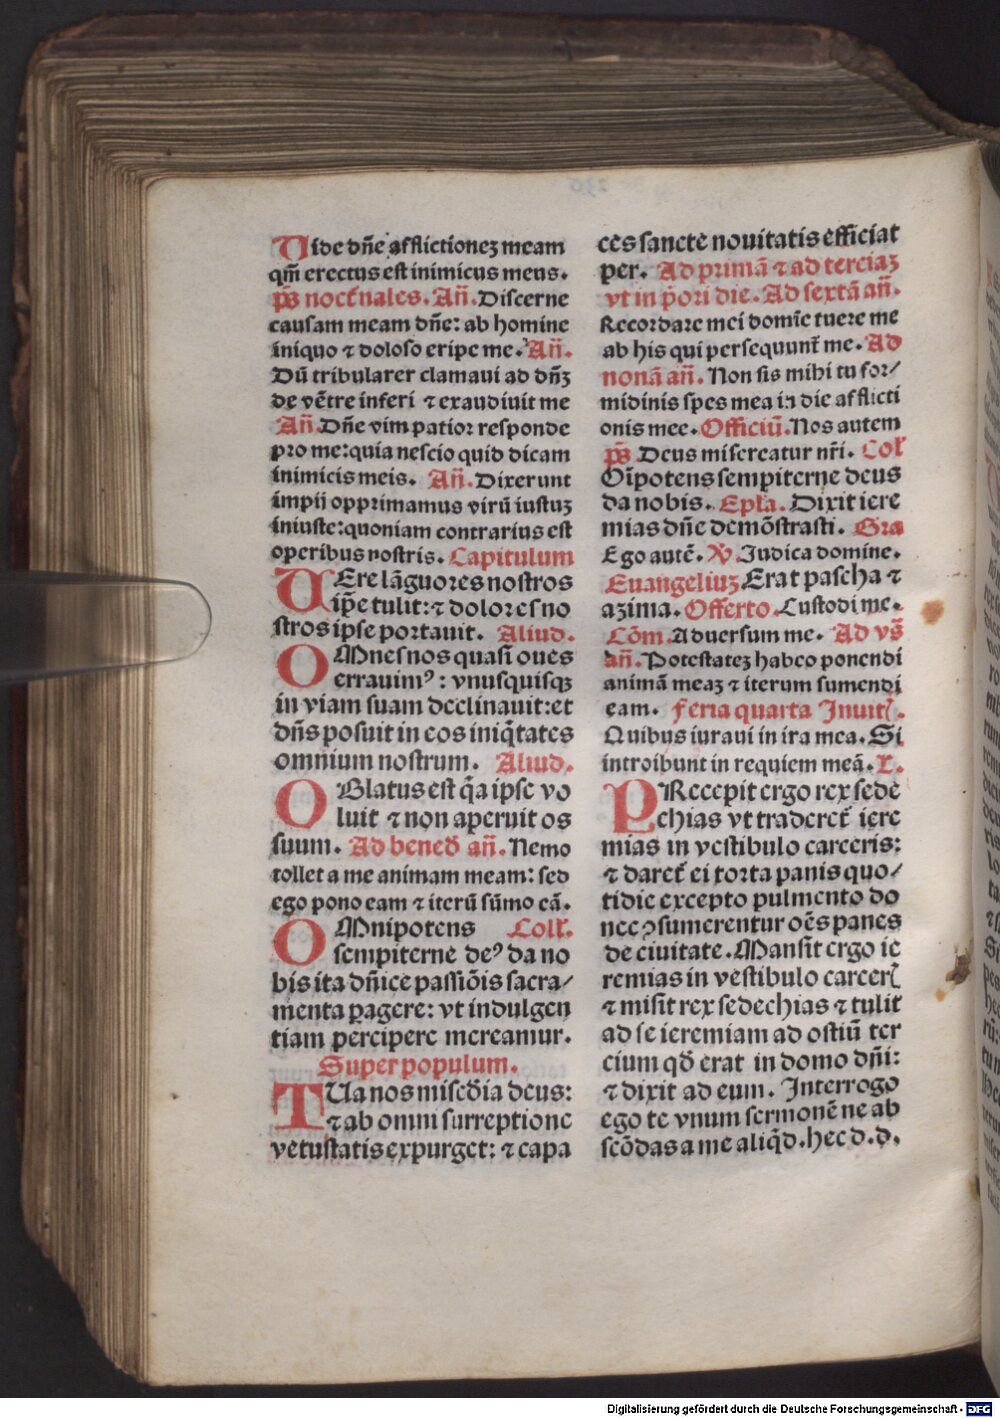 Vide dn̄e afflictioneȝ meam
qm̄ erectus est inimicus meus.
ps̄ noct̄nales. An̄. Discerne
causam meam dn̄e: ab homine
iniquo ⁊ doloso eripe me. An̄.
Dū tribularer clamaui ad dn̄ȝ
de vētre inferi ⁊ exaudiuit me
An̄. Dn̄e vim patior responde
pro me: quia nescio quid dicam
inimicis meis. An̄. Dixerunt
impij opprimamus virū iustuȝ
iniuste: quoniam contrarius est
operibus nostris. Capitulum
VEre lāguores nostros
ip̄e tulit: ⁊ dolores no
stros ipse portauit. Aliud.
OMnes nos quasi oues
errauimꝰ: vnusquisqȝ
in viam suam declinauit: et
dn̄s posuit in eos iniq̄tates
omnium nostrum. Aliud.
OBlatus est q̄a ipse vo
luit ⁊ non aperuit os
suum. Ad bened̄ an̄. Nemo
tollet a me animam meam: sed
ego pono eam ⁊ iterū sūmo eā.
OMnipotens Coll̄.
sempiterne deꝰ da no
bis ita dn̄ice passiōis sacra/
menta ꝑagere: vt indulgen
tiam percipere mereamur.
Super populum.
TUa nos misc̄dia deus:
⁊ ab omni surreptione
vetustatis expurget: ⁊ capa
ces sancte nouitatis efficiat
per. Ad primā ⁊ ad terciaȝ
vt in p̄ori die. Ad sextā an̄.
Recordare mei domīe tuere me
ab his qui persequunt̄ me. Ad
nonā an̄. Non sis mihi tu for/
midinis spes mea in die afflicti
onis mee. Officiū. Nos autem
ps̄ Deus misereatur nr̄i. Col̄
Oīpotens sempiterne deus
da nobis. Epl̄a. Dixit iere
mias dn̄e demōstrasti. Gra
Ego autē. V̄. Iudica domine.
Euangeliuȝ Erat pascha ⁊
azima. Offerto. Custodi me.
Cōm. Aduersum me. Ad vs̄
an̄. Potestateȝ habeo ponendi
animā meaȝ ⁊ iterum sumendi
eam. feria quarta Inuit̄.
Quibus iuraui in ira mea. Si
introibunt in requiem meā. L.
PRecepit ergo rex sede
chias vt traderet̄ iere
mias in vestibulo carceris:
⁊ daret̄ ei torta panis quo/
tidie excepto pulmento do
nec ꝯsumerentur oēs panes
de ciuitate. Mansit ergo ie
remias in vestibulo carcerꝭ
⁊ misit rex sedechias ⁊ tulit
ad se ieremiam ad ostiū ter
cium qd̄ erat in domo dn̄i:
⁊ dixit ad eum. Interrogo
ego te vnum sermonē ne ab
scōdas a me aliq̄d. hec d. d.
Digitalisierung gefördert durch die Deutsche Forschungsgemeinschaft - DFG